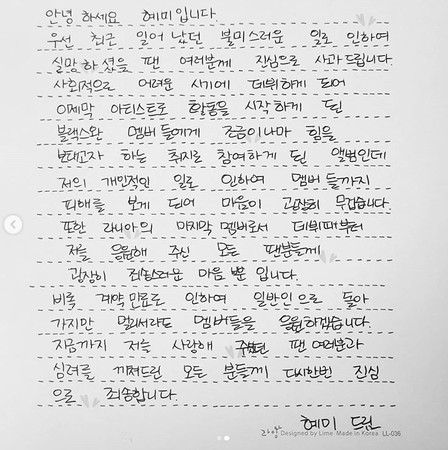 안녕 하세요 혜미입니다.
우선 최근 일어 났던 불미스러운 일로 인하여
실망하셨을 팬 여러분께 진심으로 사과 드립니다.
사회적으로 어려운 시기에 데뷔하게 되어
이제막 아티스트로 활동을 시작하게 된
블랙스완 멤버들에게 조금이나마 힘을
보태고자 하는 취지로 참여하게 된 앨범인데
저의 개인적인 일로 인하여 멤버 들까지
피해를 보게 되어 마음이 굉장히 무겁습니다.
또한 라니아의 마지막 멤버로서 데뷔때부터
저를 응원해 주신 모든 팬분들께
굉장히 죄송스러운 마음 뿐 입니다.
비록 계약만료로 인하여 일반인으로 돌아
가지만 멀리서라도 멤버들을 응원하겠습니다.
지금까지 저를 사랑해 주셨던 팬 여러분과
심려를 끼쳐드린 모든 분들께 다시한번 진심
으로 죄송합니다.
혜미 드림
라임 Designed by Lime Made in Korea LL-036